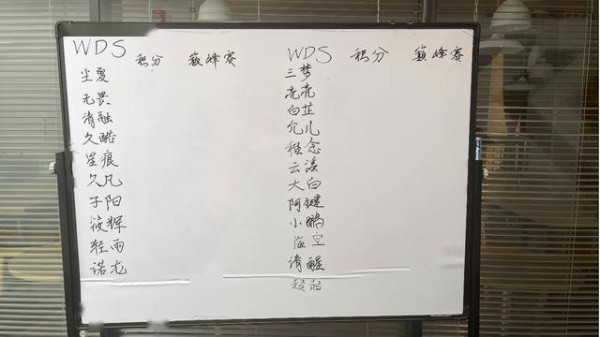 WDS 积分 巅峰赛
尘爱
无畏
消融
久醒
星痕
久凡
子阳
筱辉
轻雨
诺尤
WDS 积分 巅峰赛
三梦
亮亮
白芷
允儿
稚念
云溪
大白
阿健
小鹏
清醒